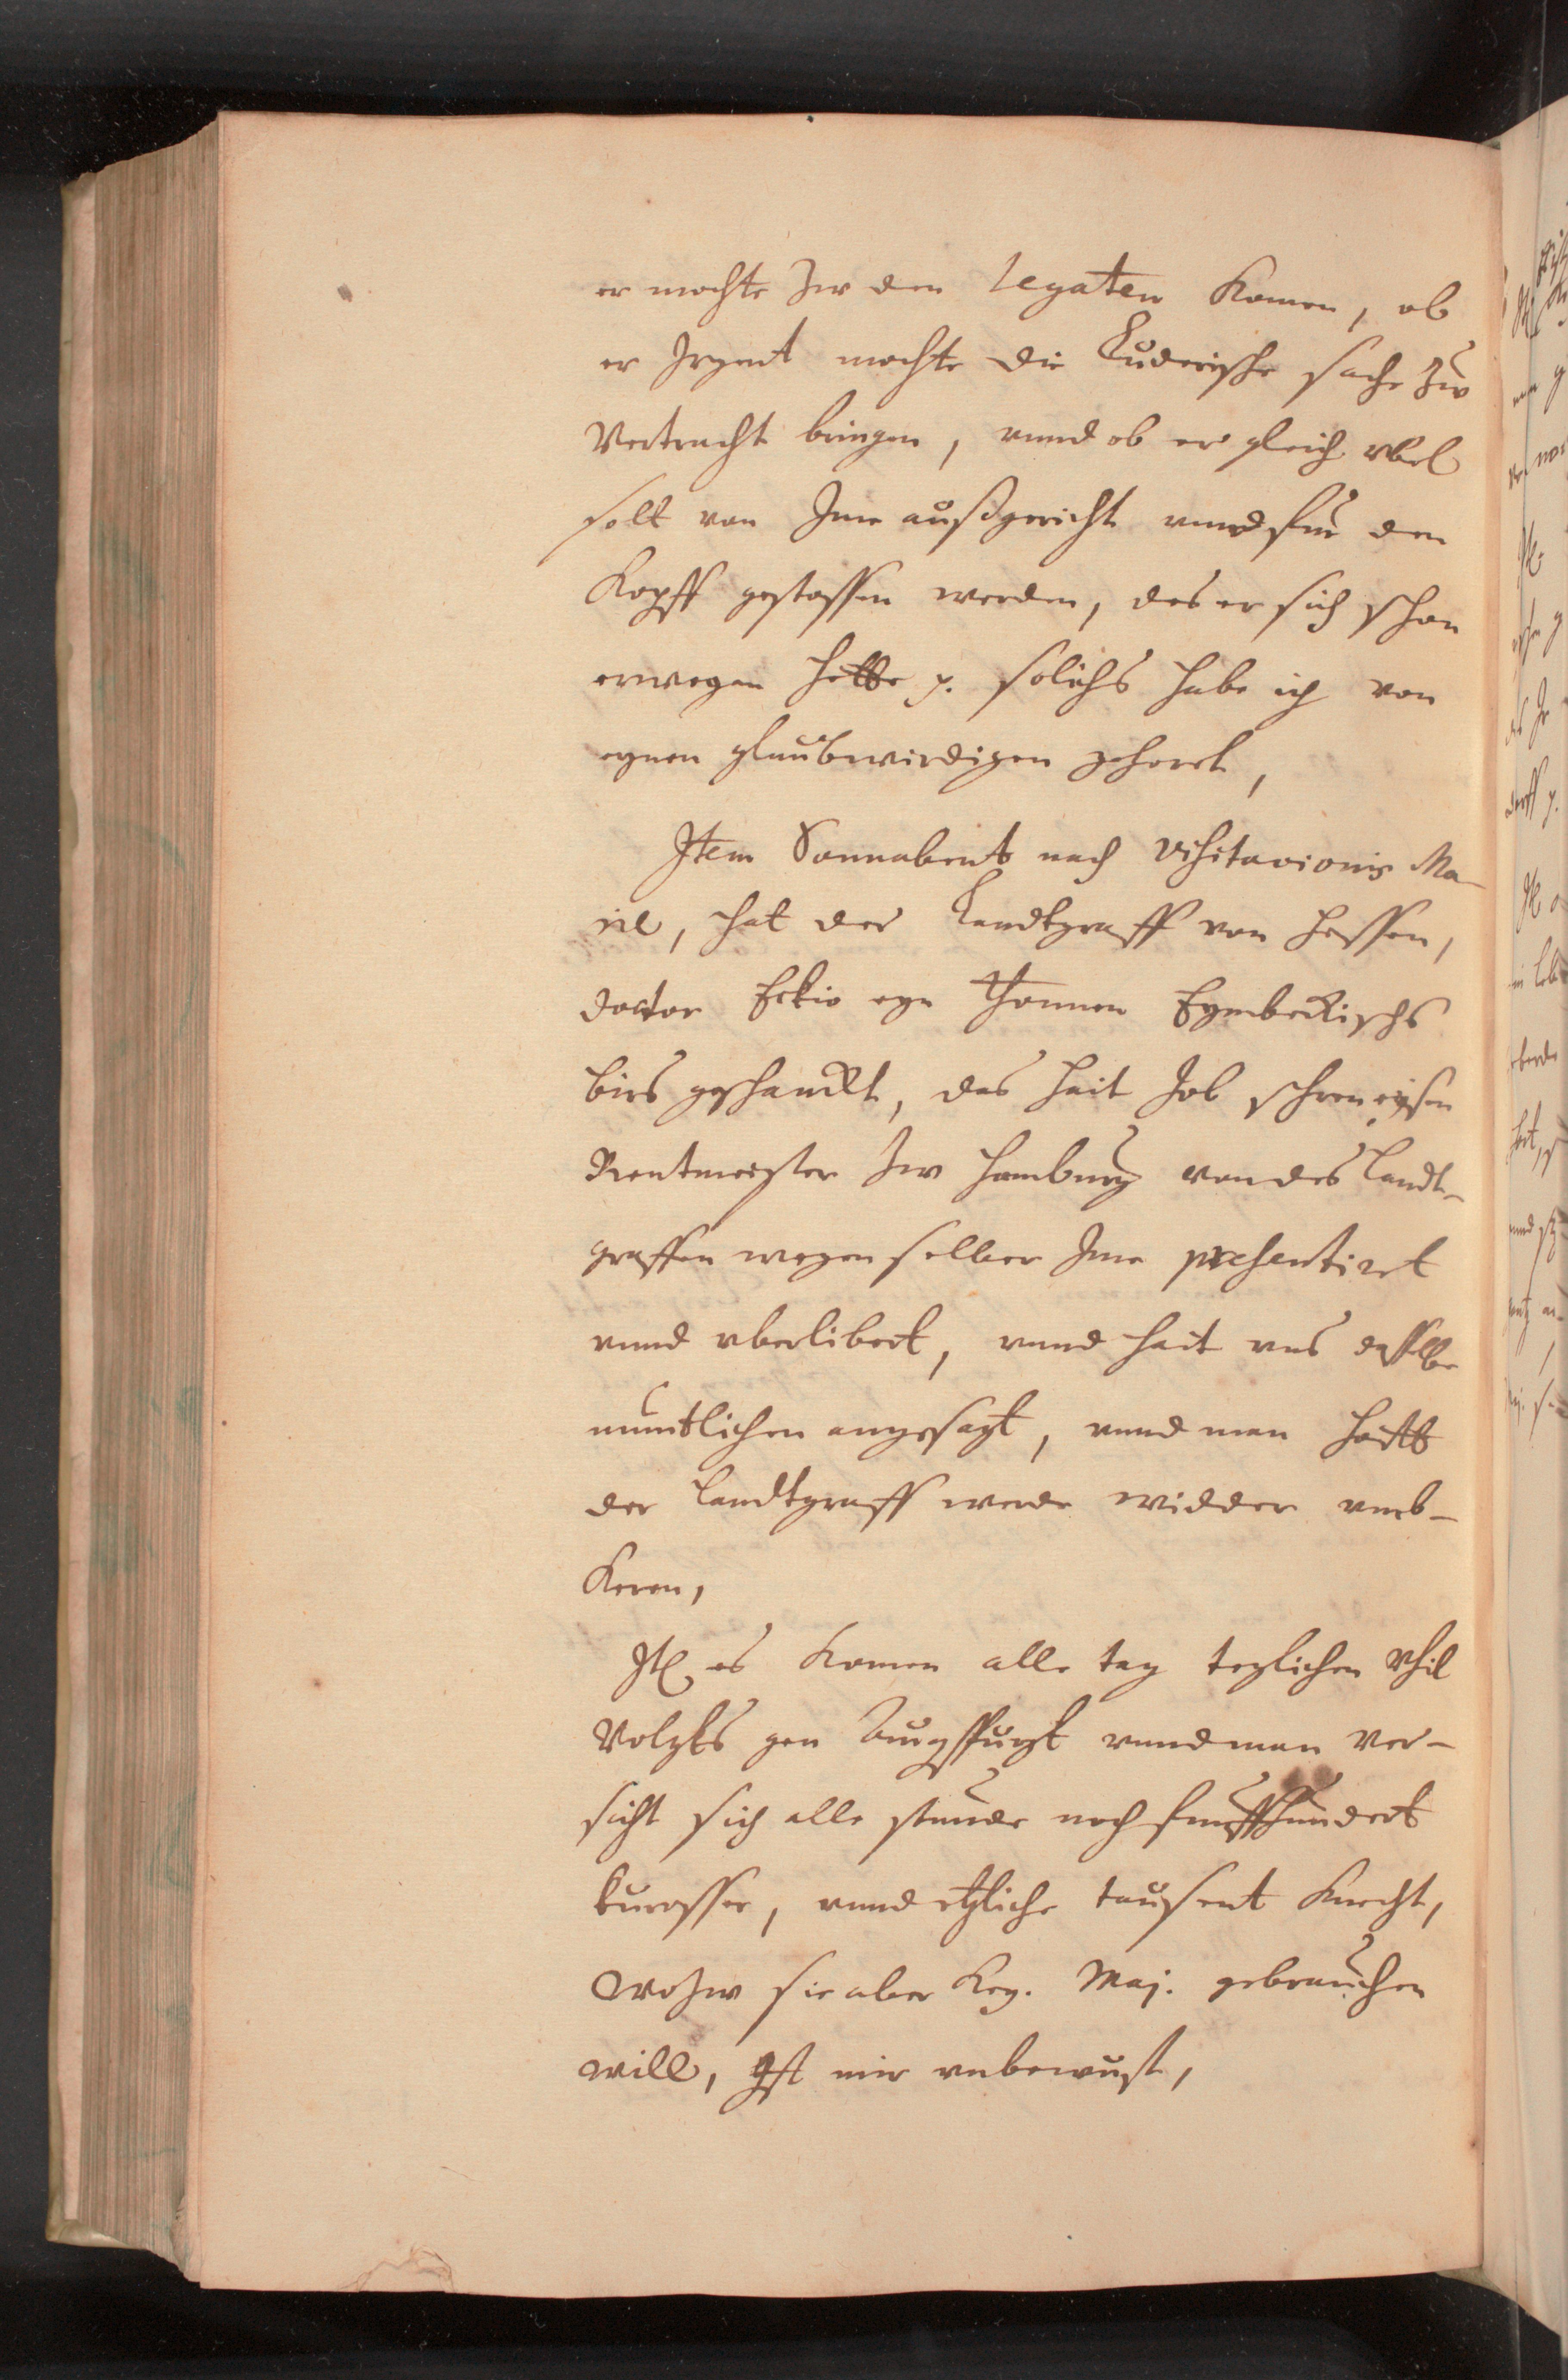 er mochte Zw den Legaten Komen, ob
er Irgent mochte die Luderische sache Zw
Vertracht bringen, vnnd ob er gleich vbel
solt von Jme außgericht vnnd fur den
Kopff gestossen werden, des er sich schon
erwegen hette p. solichs habe ich von
eynen glaubwirdigen gehoret,
Item Sonnabent nach Visitationis Ma-
rie, hat der Landtgraff von Hessen,
doctor Eckio eyn Thonnen Eymbeckischs
birs geschanckt, das hait Job schreneysen
Rentmeister Zw Homburg von des Landt-
graffen wegen selber Jme presentiret
vnnd vberlibert, vnnd hait vns dasselbe
muntlichen angesagt, vnnd man hofft
der Landtgraff werde widder vmb-
Keren,
It. es Komen alle tag teglichen Vhil
Volgks gen Augsspurgk vnnd man ver-
sicht sich alle stunde noch funffhundert
kurasser, vnnd etzliche tausent Knecht,
wo Zw sie aber Key. Maj. gebrauchen
will, Ist mir vnbewust,